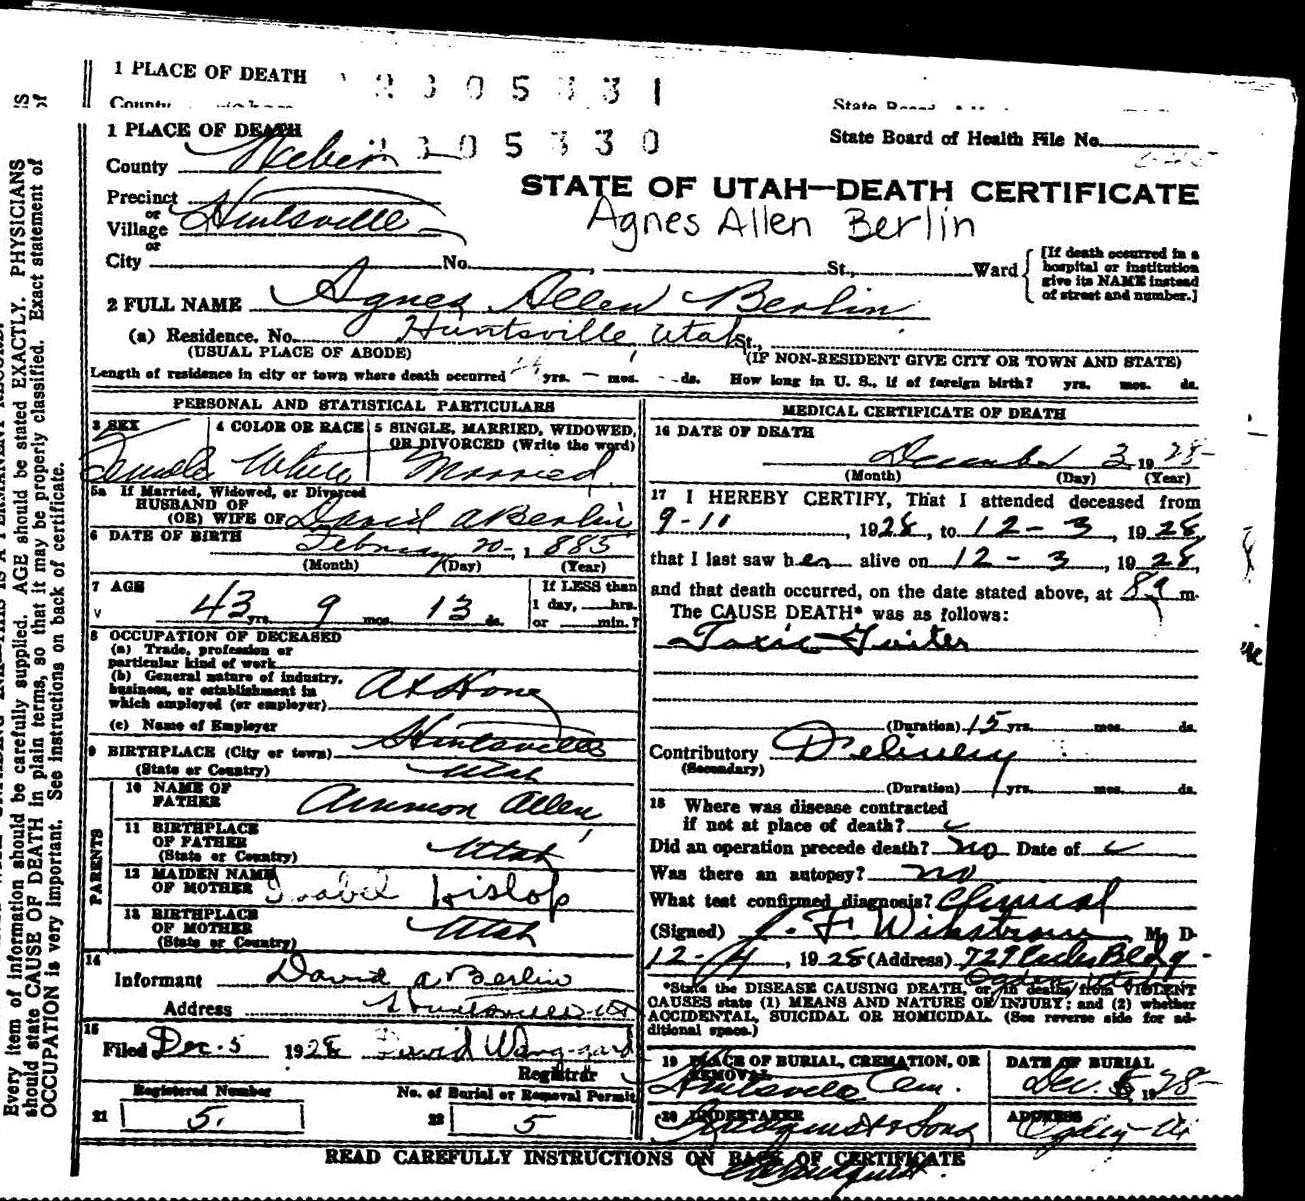 1 PLACE OF DEATH 2305331
County State Board
1 PLACE OF DEATH 2305330
State Board of Health File No.
County Weber
STATE OF UTAH—DEATH CERTIFICATE
Precinct or Village Huntsville
Agnes Allen Berlin
or City No. St., Ward
[If death occurred in a hospital or institution give its NAME instead of street and number.]
2 FULL NAME Agnes Allen Berlin
(a) Residence. No. Huntsville, Utah St.,
(USUAL PLACE OF ABODE) (IF NON-RESIDENT GIVE CITY OR TOWN AND STATE)
Length of residence in city or town where death occurred yrs. — mos. - ds. How long in U. S., if of foreign birth? yrs. mos. ds.
PERSONAL AND STATISTICAL PARTICULARS
3 SEX Female
4 COLOR OR RACE White
5 SINGLE, MARRIED, WIDOWED, OR DIVORCED (Write the word) Married
5a If Married, Widowed, or Divorced
HUSBAND OF
(OR) WIFE OF David A Berlin
6 DATE OF BIRTH February 20 - 1885
(Month) (Day) (Year)
7 AGE 43 yrs. 9 mos. 13 ds.
If LESS than
1 day, hrs.
or min.?
8 OCCUPATION OF DECEASED
(a) Trade, profession or
particular kind of work
(b) General nature of industry,
business, or establishment in
which employed (or employer) At Home
(c) Name of Employer
9 BIRTHPLACE (City or town) Huntsville
(State or Country) Utah
PARENTS
10 NAME OF FATHER Ammon Allen
11 BIRTHPLACE OF FATHER
(State or Country) Utah
12 MAIDEN NAME OF MOTHER Isabel Hislop
13 BIRTHPLACE OF MOTHER
(State or Country) Utah
14
Informant David A Berlin
Address Huntsville Ut
15
Filed Dec. 5 1928 David Wangsgard
Registrar
Registered Number No. of Burial or Removal Permit
21 5. 22 5
MEDICAL CERTIFICATE OF DEATH
16 DATE OF DEATH
December 3 1928
(Month) (Day) (Year)
17 I HEREBY CERTIFY, That I attended deceased from
9-11, 1928, to 12-3, 1928
that I last saw her alive on 12-3, 1928,
and that death occurred, on the date stated above, at m.
The CAUSE DEATH* was as follows:
Toxic Goiter
(Duration) 15 yrs. mos. ds.
Contributory
(Secondary)
(Duration) yrs. mos. ds.
18 Where was disease contracted
if not at place of death? ✓
Did an operation precede death? No Date of ✓
Was there an autopsy? no
What test confirmed diagnosis? Clinical
(Signed) J. F. Wikstrom M. D.
12-4, 1928 (Address) 729 Eccles Bldg -
Ogden Utah
*State the DISEASE CAUSING DEATH, or in deaths from VIOLENT
CAUSES state (1) MEANS AND NATURE OF INJURY; and (2) whether
ACCIDENTAL, SUICIDAL OR HOMICIDAL. (See reverse side for ad-
ditional space.)
19 PLACE OF BURIAL, CREMATION, OR REMOVAL Huntsville Cem.
DATE OF BURIAL Dec. 1928
20 UNDERTAKER Lindquist & Sons
ADDRESS Ogden Ut
READ CAREFULLY INSTRUCTIONS ON BACK OF CERTIFICATE
Every item of information should be carefully supplied. AGE should be stated EXACTLY. PHYSICIANS
should state CAUSE OF DEATH in plain terms, so that it may be properly classified. Exact statement of
OCCUPATION is very important. See instructions on back of certificate.